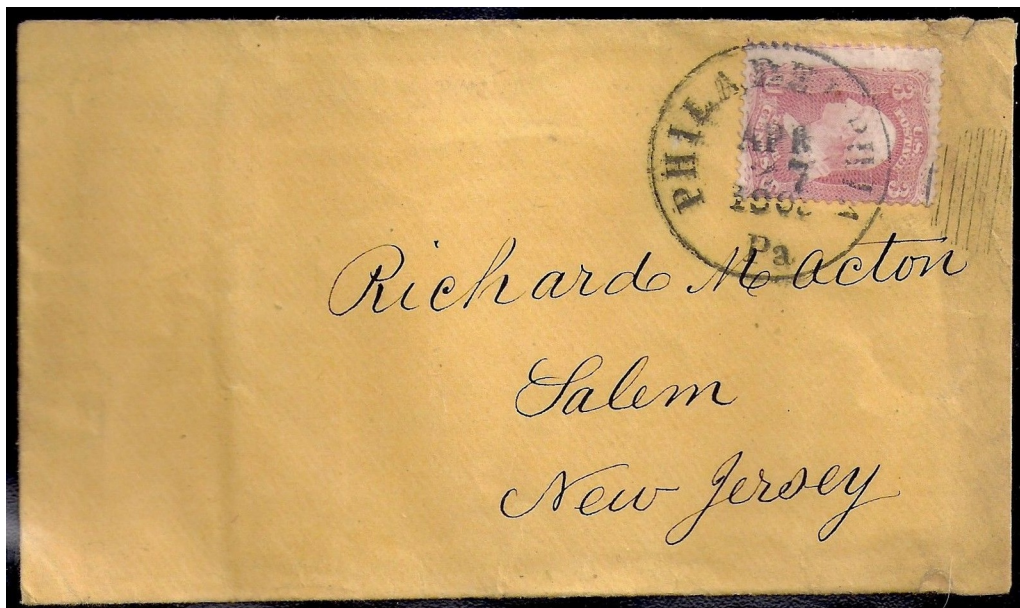 PHILADELPHIA
APR
7
Pa
3 3
U.S.
Richard M Acton
Salem
New Jersey